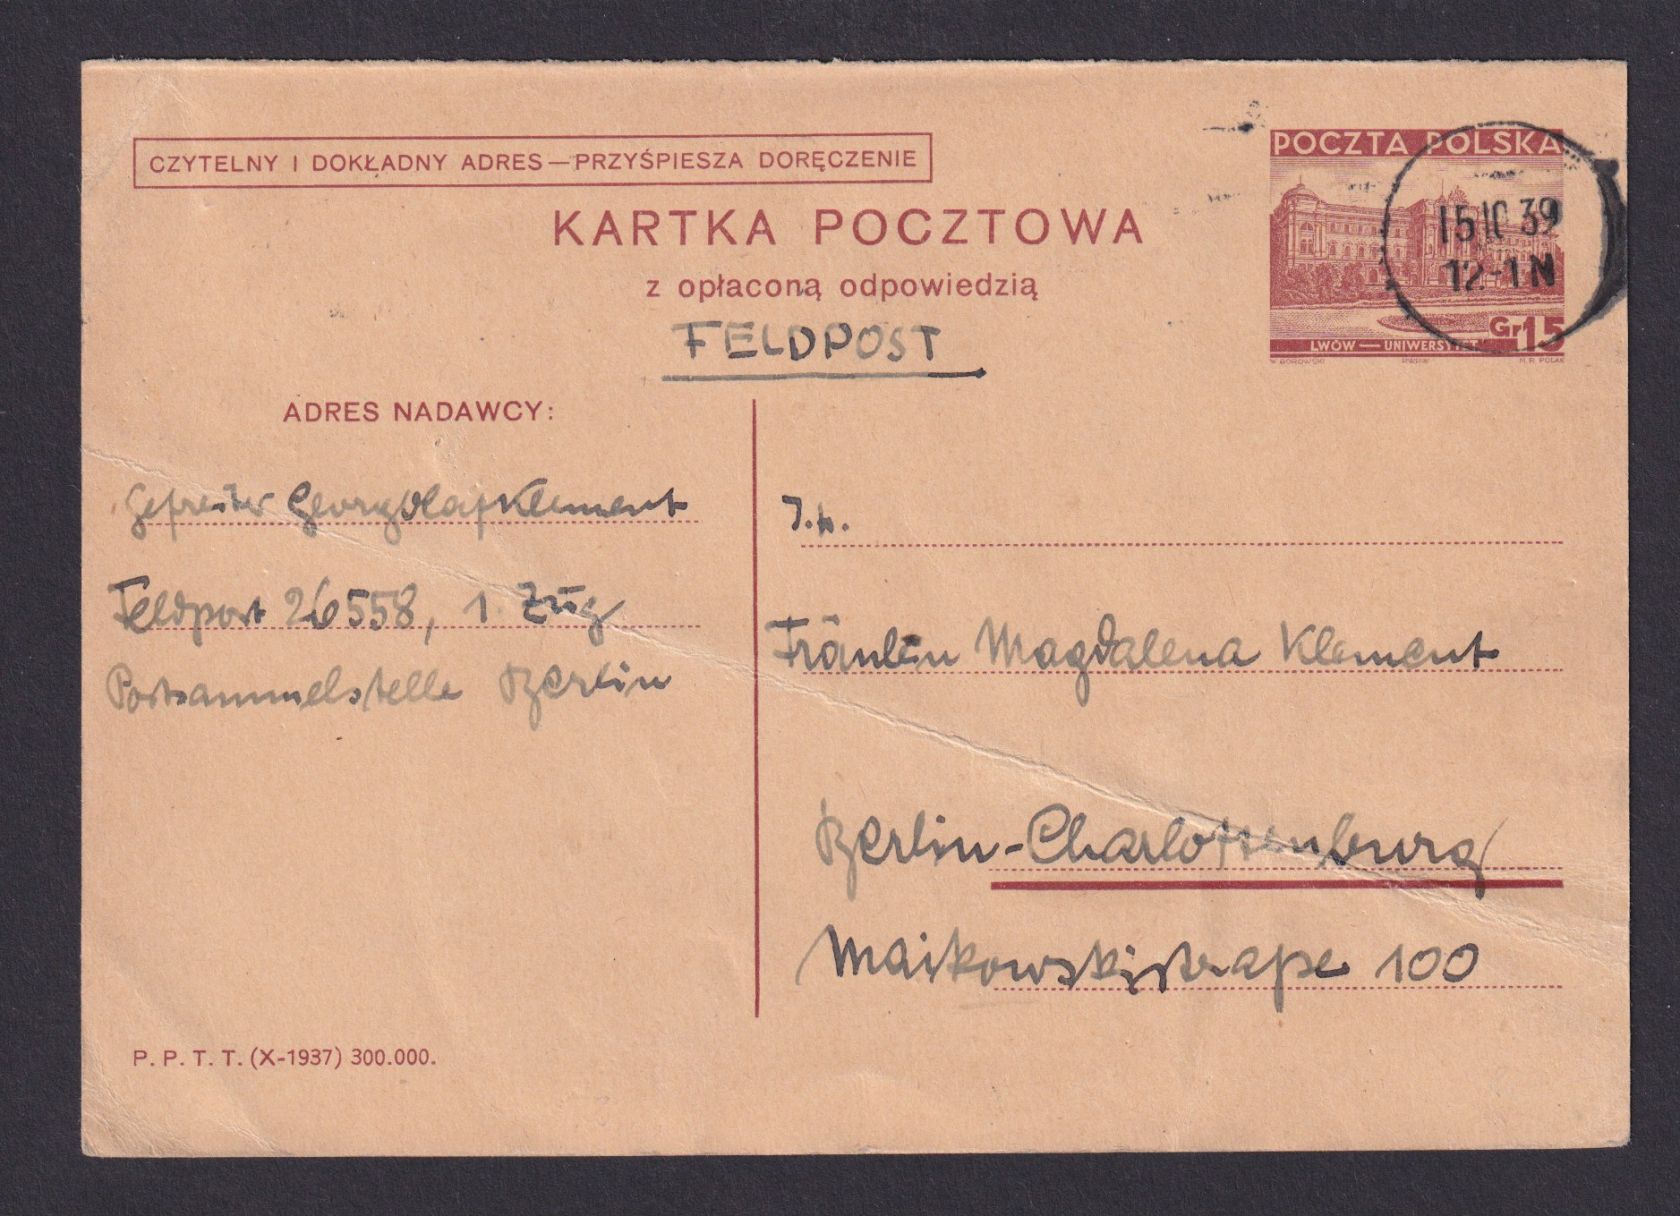 CZYTELNY I DOKŁADNY ADRES — PRZYŚPIESZA DORĘCZENIE
KARTKA POCZTOWA
z opłaconą odpowiedzią
FELDPOST
POCZTA POLSKA
15 10 39
12-1 N
Gr 15
LWÓW — UNIWERSYTET
W. BOROWSKI
PWPW
M.R. POLAK
ADRES NADAWCY:
Gefreiter Georg Olaf Klement
Feldpost 26558, 1. Zug
Postsammelstelle Berlin
Fräulein Magdalena Klement
Berlin-Charlottenburg
Maikowskistraße 100
P. P. T. T. (X-1937) 300.000.